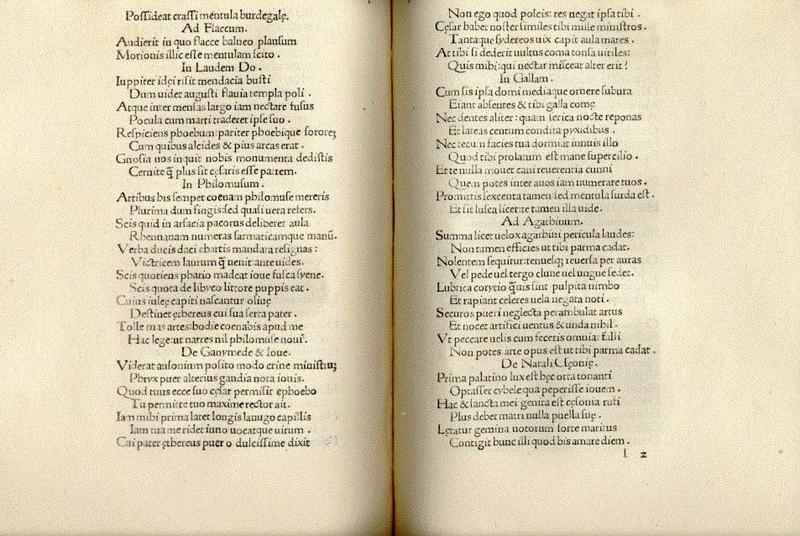 Possideat crassi mentula burdegalę.
Ad Flaccum.
Audierit in quo flacce balneo plausum
Motionis illic esse mentulam scito.
In Laudem Do.
Iuppiter idęi risit mendacia busti
Dum uidet augusti flauia templa poli.
Atque inter mensas largo iam nectare fusus
Pocula cum marti traderet ipse suo.
Respiciens phoebum: pariter phoebique sorore;
Cum quibus alcides & pius arcas erat.
Gnosia uos inquit nobis monumenta dedistis
Cernite q̃ plus sit cęsaris esse patrem.
In Philomusum.
Artibus his semper coenam philomuse mereris
Plurima dum fingis: sed quasi uera refers.
Scis quid in arsacia pacorus deliberet aula
Rhennanam numeras sarmaticamque manũ.
Verba ducis daci chartis mandata resignas:
Victricem laurum q̃ uenit: ante uides.
Scis quotiens phario madeat ioue fusca syene.
Scis quota de libyco littore puppis eat.
Cuius iulęe capiti nascantur oliuę
Destinet ęthereus cui sua serta pater.
Tolle tuas artes: hodie coenabis apud me
Hac lege: ut narres nil philomuse noui.
De Ganymede & Ioue.
Viderat ausonium posito modo crine ministrų
Phryx puer alterius gaudia nota iouis.
Quod tuus ecce suo cęsar permisit ephoebo
Tu permitte tuo maxime rector ait.
Iam mihi prima latet longis lanugo capillis
Iam tua me ridet iuno uocatque uirum.
Cui pater ęthereus puer o dulcissime dixit
Non ego quod poscis: res negat ipsa tibi.
Cęsar habet noster similes tibi mille ministros.
Tantaque sydereos uix capit aula mares.
At tibi si dederit uultus coma tonsa uiriles:
Quis mihi: qui nectar misceat alter erit?
In Gallam.
Cum sis ipsa domi mediaque ornere subura
Fiant absentes & tibi galla comę
Nec dentes aliter: quam serica nocte reponas
Et lateas centum condita pyxidibus.
Nec tecum facies tua dormiat innuis illo
Quod tibi prolatum est mane supercilio.
Et te nulla mouet cani reuerentia cunni
Quem potes inter auos iam numerare tuos.
Promittis sexcenta tamen sed mentula surda est.
Et sit lusca licet: te tamen illa uide.
Ad Agathinum.
Summa licet uelox agathini pericula laudes:
Non tamen efficies ut tibi parma cadat.
Nolentem sequitur: tenuesq; reuersa per auras
Vel pede uel tergo clune uel ungue sedet.
Lubrica corycio q̃uis sint pulpita nimbo
Et rapiant celeres uela negata noti.
Securos pueri neglecta perambulat artus
Et nocet artifici uentus & unda nihil.
Vt peccare uelis cum feceris omnia: falli
Non potes arte opus est ut tibi parma cadat.
De Natali Cęsonię.
Prima palatino lux est hęc orta tonanti
Optasset cybele qua peperisse iouem.
Hac & sancta mei genita est cęsonia rufi
Plus debet matri nulla puella suę.
Lętatur gemina uotorum sorte maritus
Contigit hunc illi quod bis amare diem.
l 2